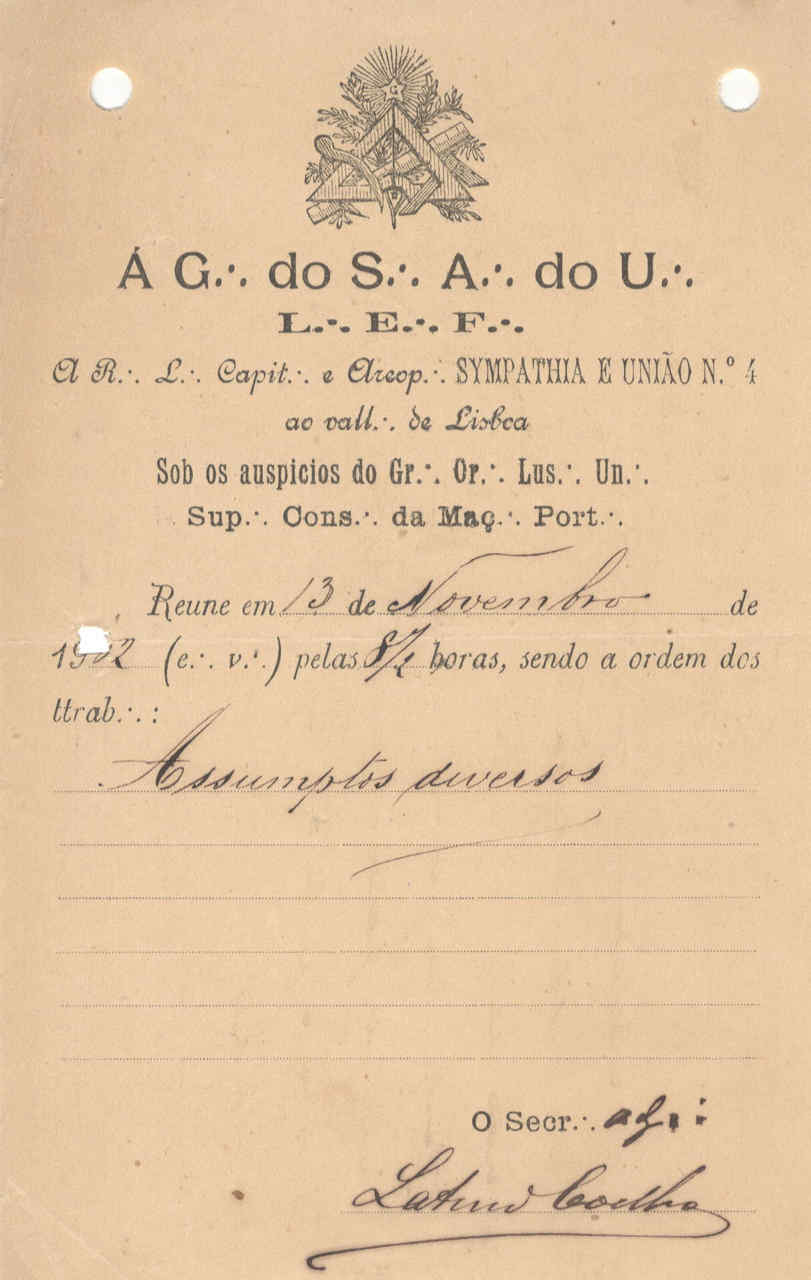 G
Á G.·. do S.·. A.·. do U.·.
L.·. E.·. F.·.
A R.·. L.·. Capit.·. e Areop.·. SYMPATHIA E UNIÃO N.º 4
ao vall.·. de Lisboa
Sob os auspicios do Gr.·. Or.·. Lus.·. Un.·.
Sup.·. Cons.·. da Maç.·. Port.·.
Reune em 13 de Novembro de
(e.·. v.·.) pelas 8 1/2 horas, sendo a ordem dos
ttrab.·. :
Assumptos diversos
O Secr.·. adj.·.
Latino Coelho